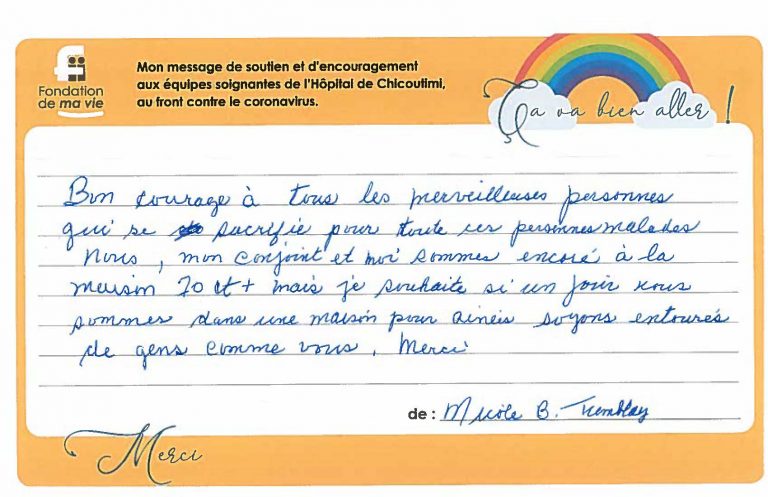 Fondation
de ma vie
Mon message de soutien et d'encouragement
aux équipes soignantes de l'Hôpital de Chicoutimi,
au front contre le coronavirus.
Ça va bien aller !
Bon courage à tous les merveilleuses personnes
qui se sacrifie pour toute ces personnes malades
Nous, mon conjoint et moi sommes encore à la
maison 70 et + mais je souhaite si un jour nous
sommes dans une maison pour ainéis soyons entourés
de gens comme vous. Merci
de : Nicole B. Tremblay
Merci